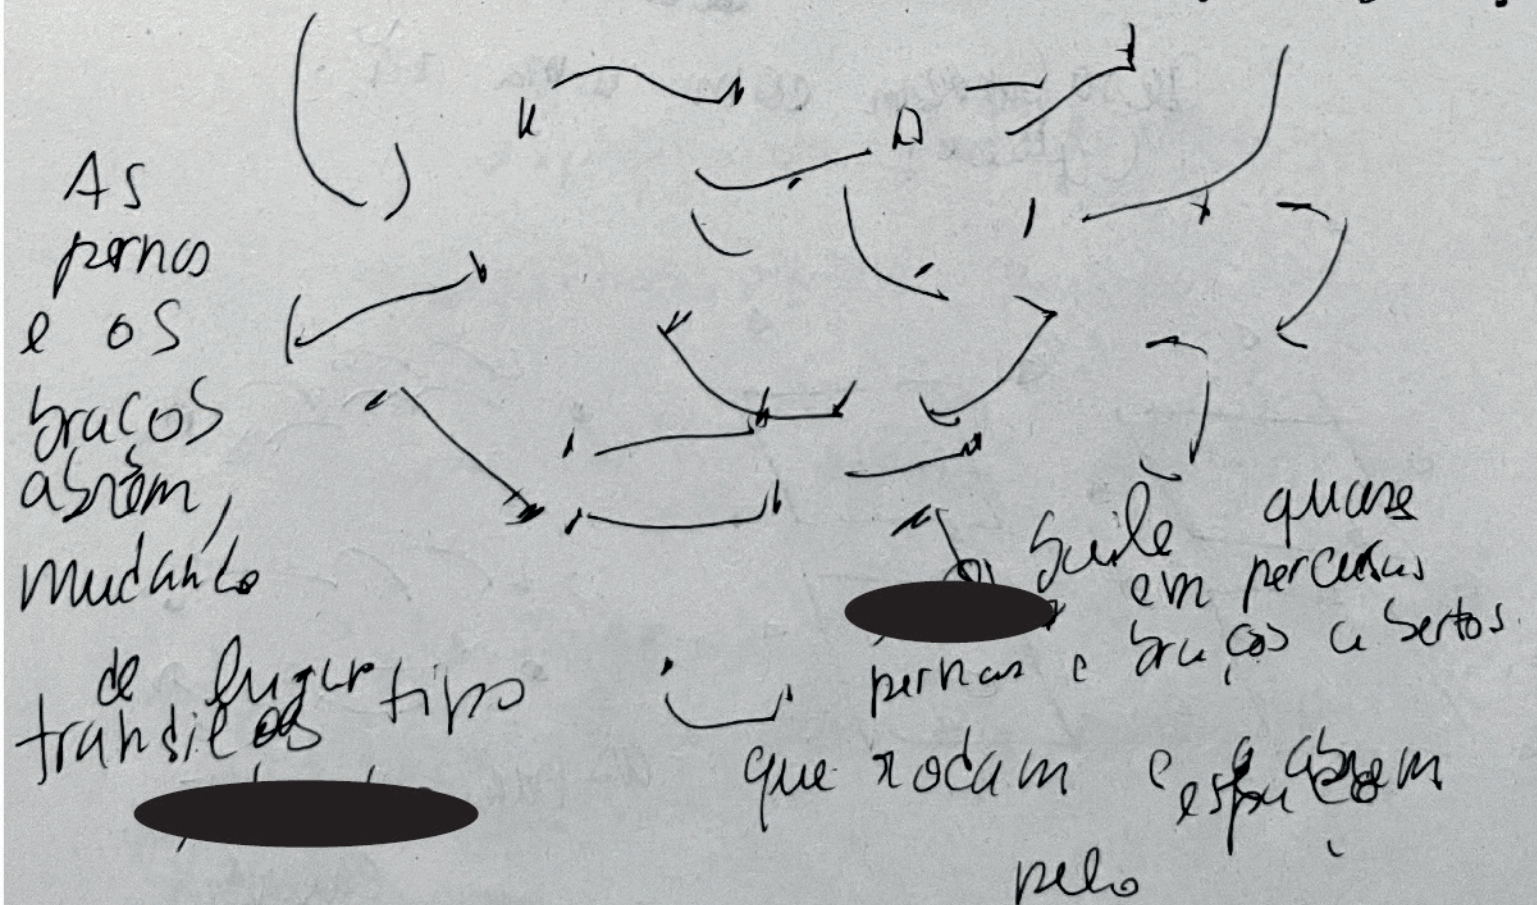 As
pernas
e os
braços
abrem,
mudando
de lugar
tipo
quase
em percursos
pernas e braços abertos.
que rodam e abrem
espaço
pelo